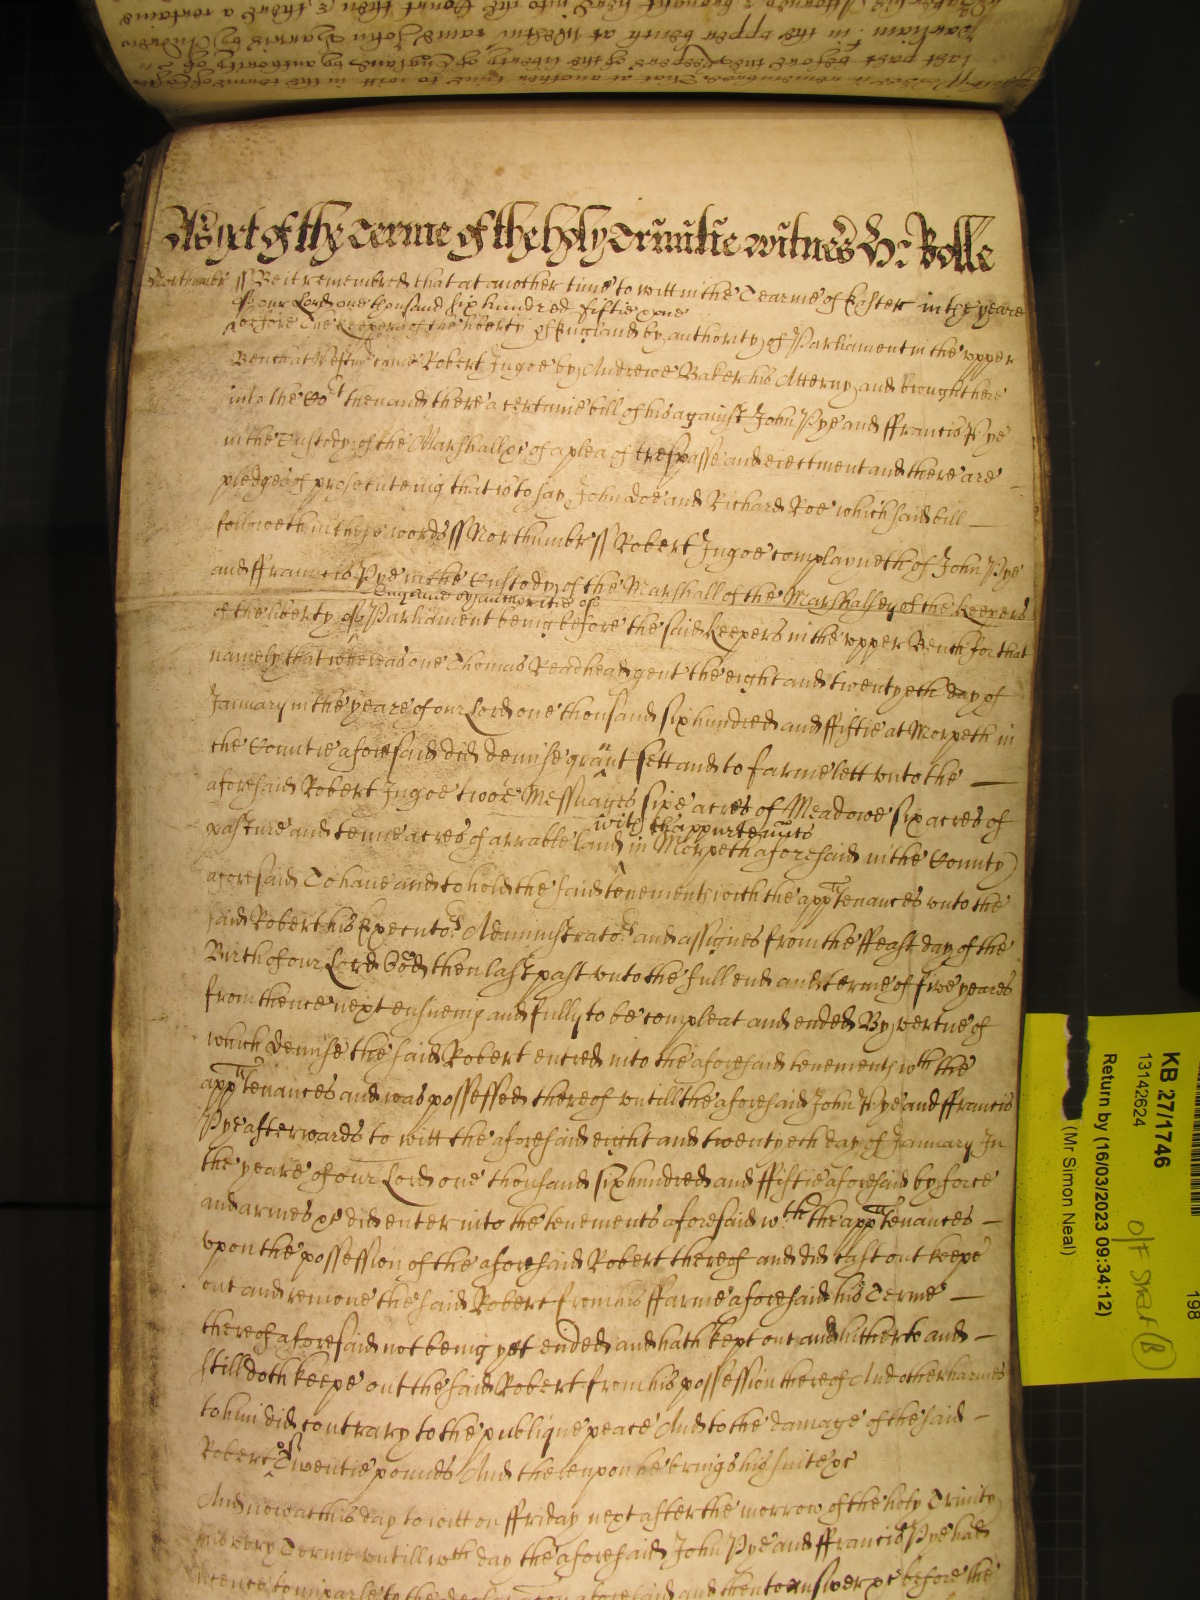 As yet of the Terme of the holy Trinitie witnes H: Rolle
Northumbr ss Be it remembred that at another time to witt in the Tearme of Easter in the yeare
of our Lord one thousand six hundred fiftie & one
before the keepers of the liberty of England by authority of Parliament in the vpper
Bench at Westmr came Robert Ingoe by Andrewe Baker his Atterny and brought here
into the Cort then and there a certaine bill of his against John Pye and ffrancis Pye
in the Custody of the Marshall &c of a plea of trespasse and eiectment and there are
pledges of prosecuteing that is to say John Doe and Richard Roe which said bill
followeth in these words ss Northumbr ss Robert Ingoe complayneth of John Pye
and ffrancis Pye in the Custody of the Marshall of the Marshalsey of the keepers
England by authoritie of
of the liberty of Parliament being before the said keepers in the vpper Bench for that
namely that whereas one Thomas Readhead gent the eight and twentyeth day of
January in the yeare of our Lord one thousand six hundred and ffiftie at Morpeth in
the Countie aforesaid did demise graunt sett and to farme lett vnto the
aforesaid Robert Ingoe twoe Messuages sixe acres of Meadowe six acres of
with thappurtenncs
pasture and tenne acres of arrable land in Morpeth aforesaid in the County
aforesaid To haue and to hold the said tenements with the appurtenances vnto the
said Robert his Executors Administrators and assignes from the ffeast day of the
Birth of our Lord God then last past vnto the full end and terme of five yeares
from thence next ensueing and fully to be compleat and ended By vertue of
which demise the said Robert entred into the aforesaid tenements wth the
appurtenances and was possessed thereof vntill the aforesaid John Pye and ffrancis
Pye afterwards to witt the aforesaid eight and twentyeth day of January In
the yeare of our Lord one thousand six hundred and ffiftie aforesaid by force
and armes &c did enter into the tenements aforesaid wth the appurtenances
vpon the possession of the aforesaid Robert thereof and did cast out keepe
out and remoue the said Robert from his ffarme aforesaid his Terme
thereof aforesaid not being yet ended and hath kept out and hitherto and
still doth keepe out the said Robert from his possession thereof And other harmes
to him did contrary to the publique peace And to the damage of the said
Robert of Twentie pounds And thereupon he brings his suite &c
And now at this day to witt on ffriday next after the morrow of the holy Trinity
vntill wch day the aforesaid John Pye and ffrancis Pye had
to imparle to the aforesaid and then to answer &c before the
KB 27/1746
13142624
Return by (16/03/2023 09:34:12)
(Mr Simon Neal)
198